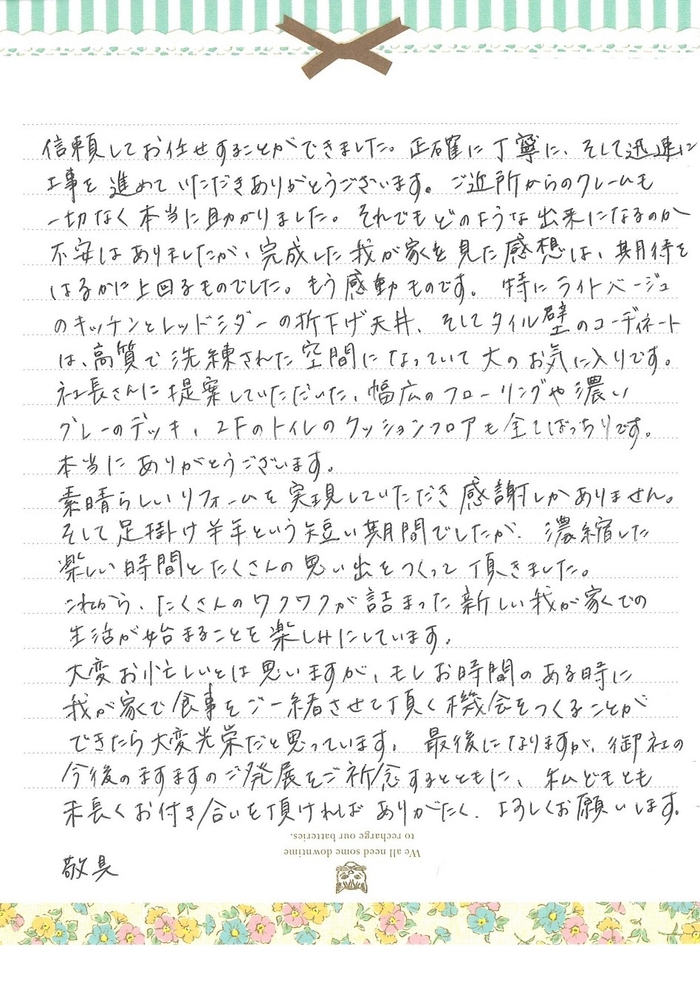 信頼してお任せすることができました。正確に丁寧に、そして迅速に
工事を進めていただきありがとうございます。ご近所からのクレームも
一切なく本当に助かりました。それでもどのような出来になるのか
不安はありましたが、完成した我が家を見た感想は、期待を
はるかに上回るものでした。もう感動ものです。特にライトベージュ
のキッチンとレッドシダーの折下げ天井、そしてタイル壁のコーディネート
は、高質で洗練された空間になっていて大のお気に入りです。
社長さんに提案していただいた、幅広のフローリングや濃い
グレーのデッキ、2Fのトイレのクッションフロアも全てばっちりです。
本当にありがとうございます。
素晴らしいリフォームを実現していただき感謝しかありません。
そして足掛け半年という短い期間でしたが、濃縮した
楽しい時間とたくさんの思い出をつくって頂きました。
これから、たくさんのワクワクが詰まった新しい我が家での
生活が始まることを楽しみにしています。
大変お忙しいとは思いますが、もしお時間のある時に
我が家で食事をご一緒させて頂く機会をつくることが
できたら大変光栄だと思っています。最後になりますが、御社の
今後のますますのご発展をご祈念するとともに、私どもとも
末長くお付き合いを頂ければありがたく、よろしくお願いします。
敬具
We all need some downtime
to recharge our batteries.